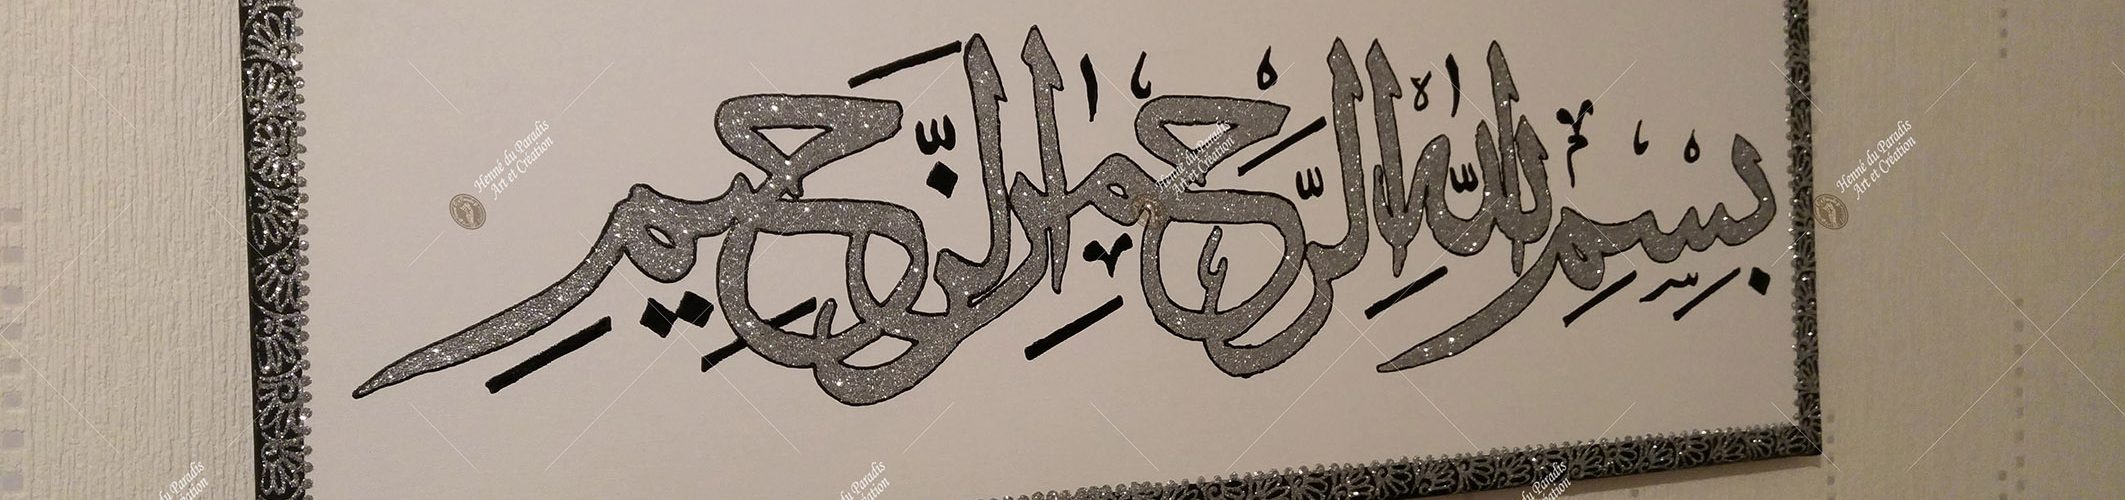 بِسْمِ اللهِ الرَّحْمٰنِ الرَّحِيمِ
Henné du Paradis
Art et Création
Henné du Paradis
Art et Création
Henné du Paradis
Art et Création
du Paradis
du Paradis
du Paradis